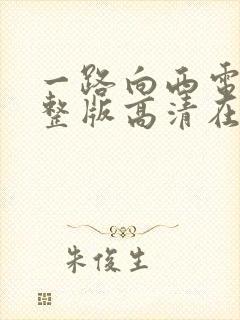 一路向西电
整版高清在
朱俊生